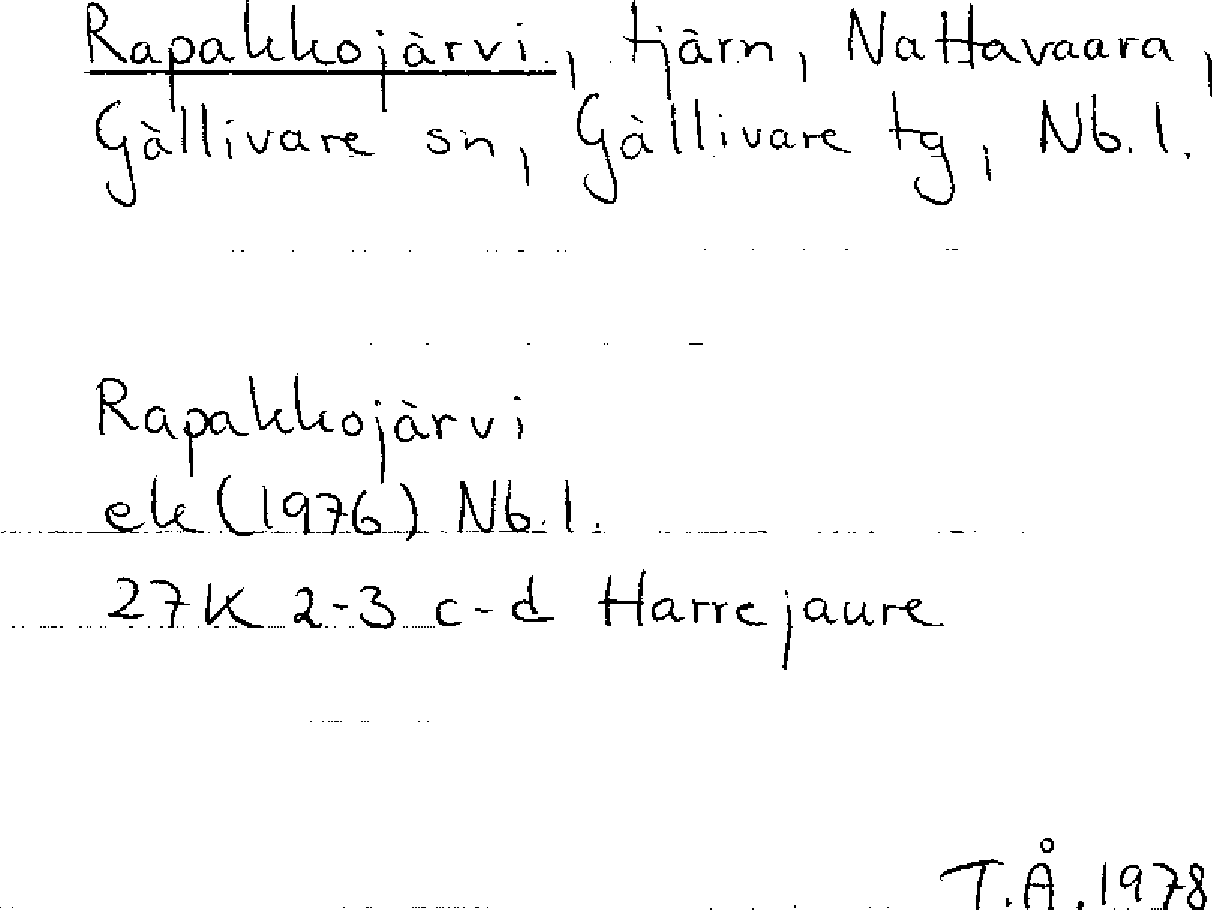 Rapakkojärvi, tjärn, Nattavaara,
Gällivare sn, Gällivare tg, Nb.l.
Rapakkojärvi
ek (1976) Nb.l.
27K 2-3 c-d Harrejaure
T.Å.1978